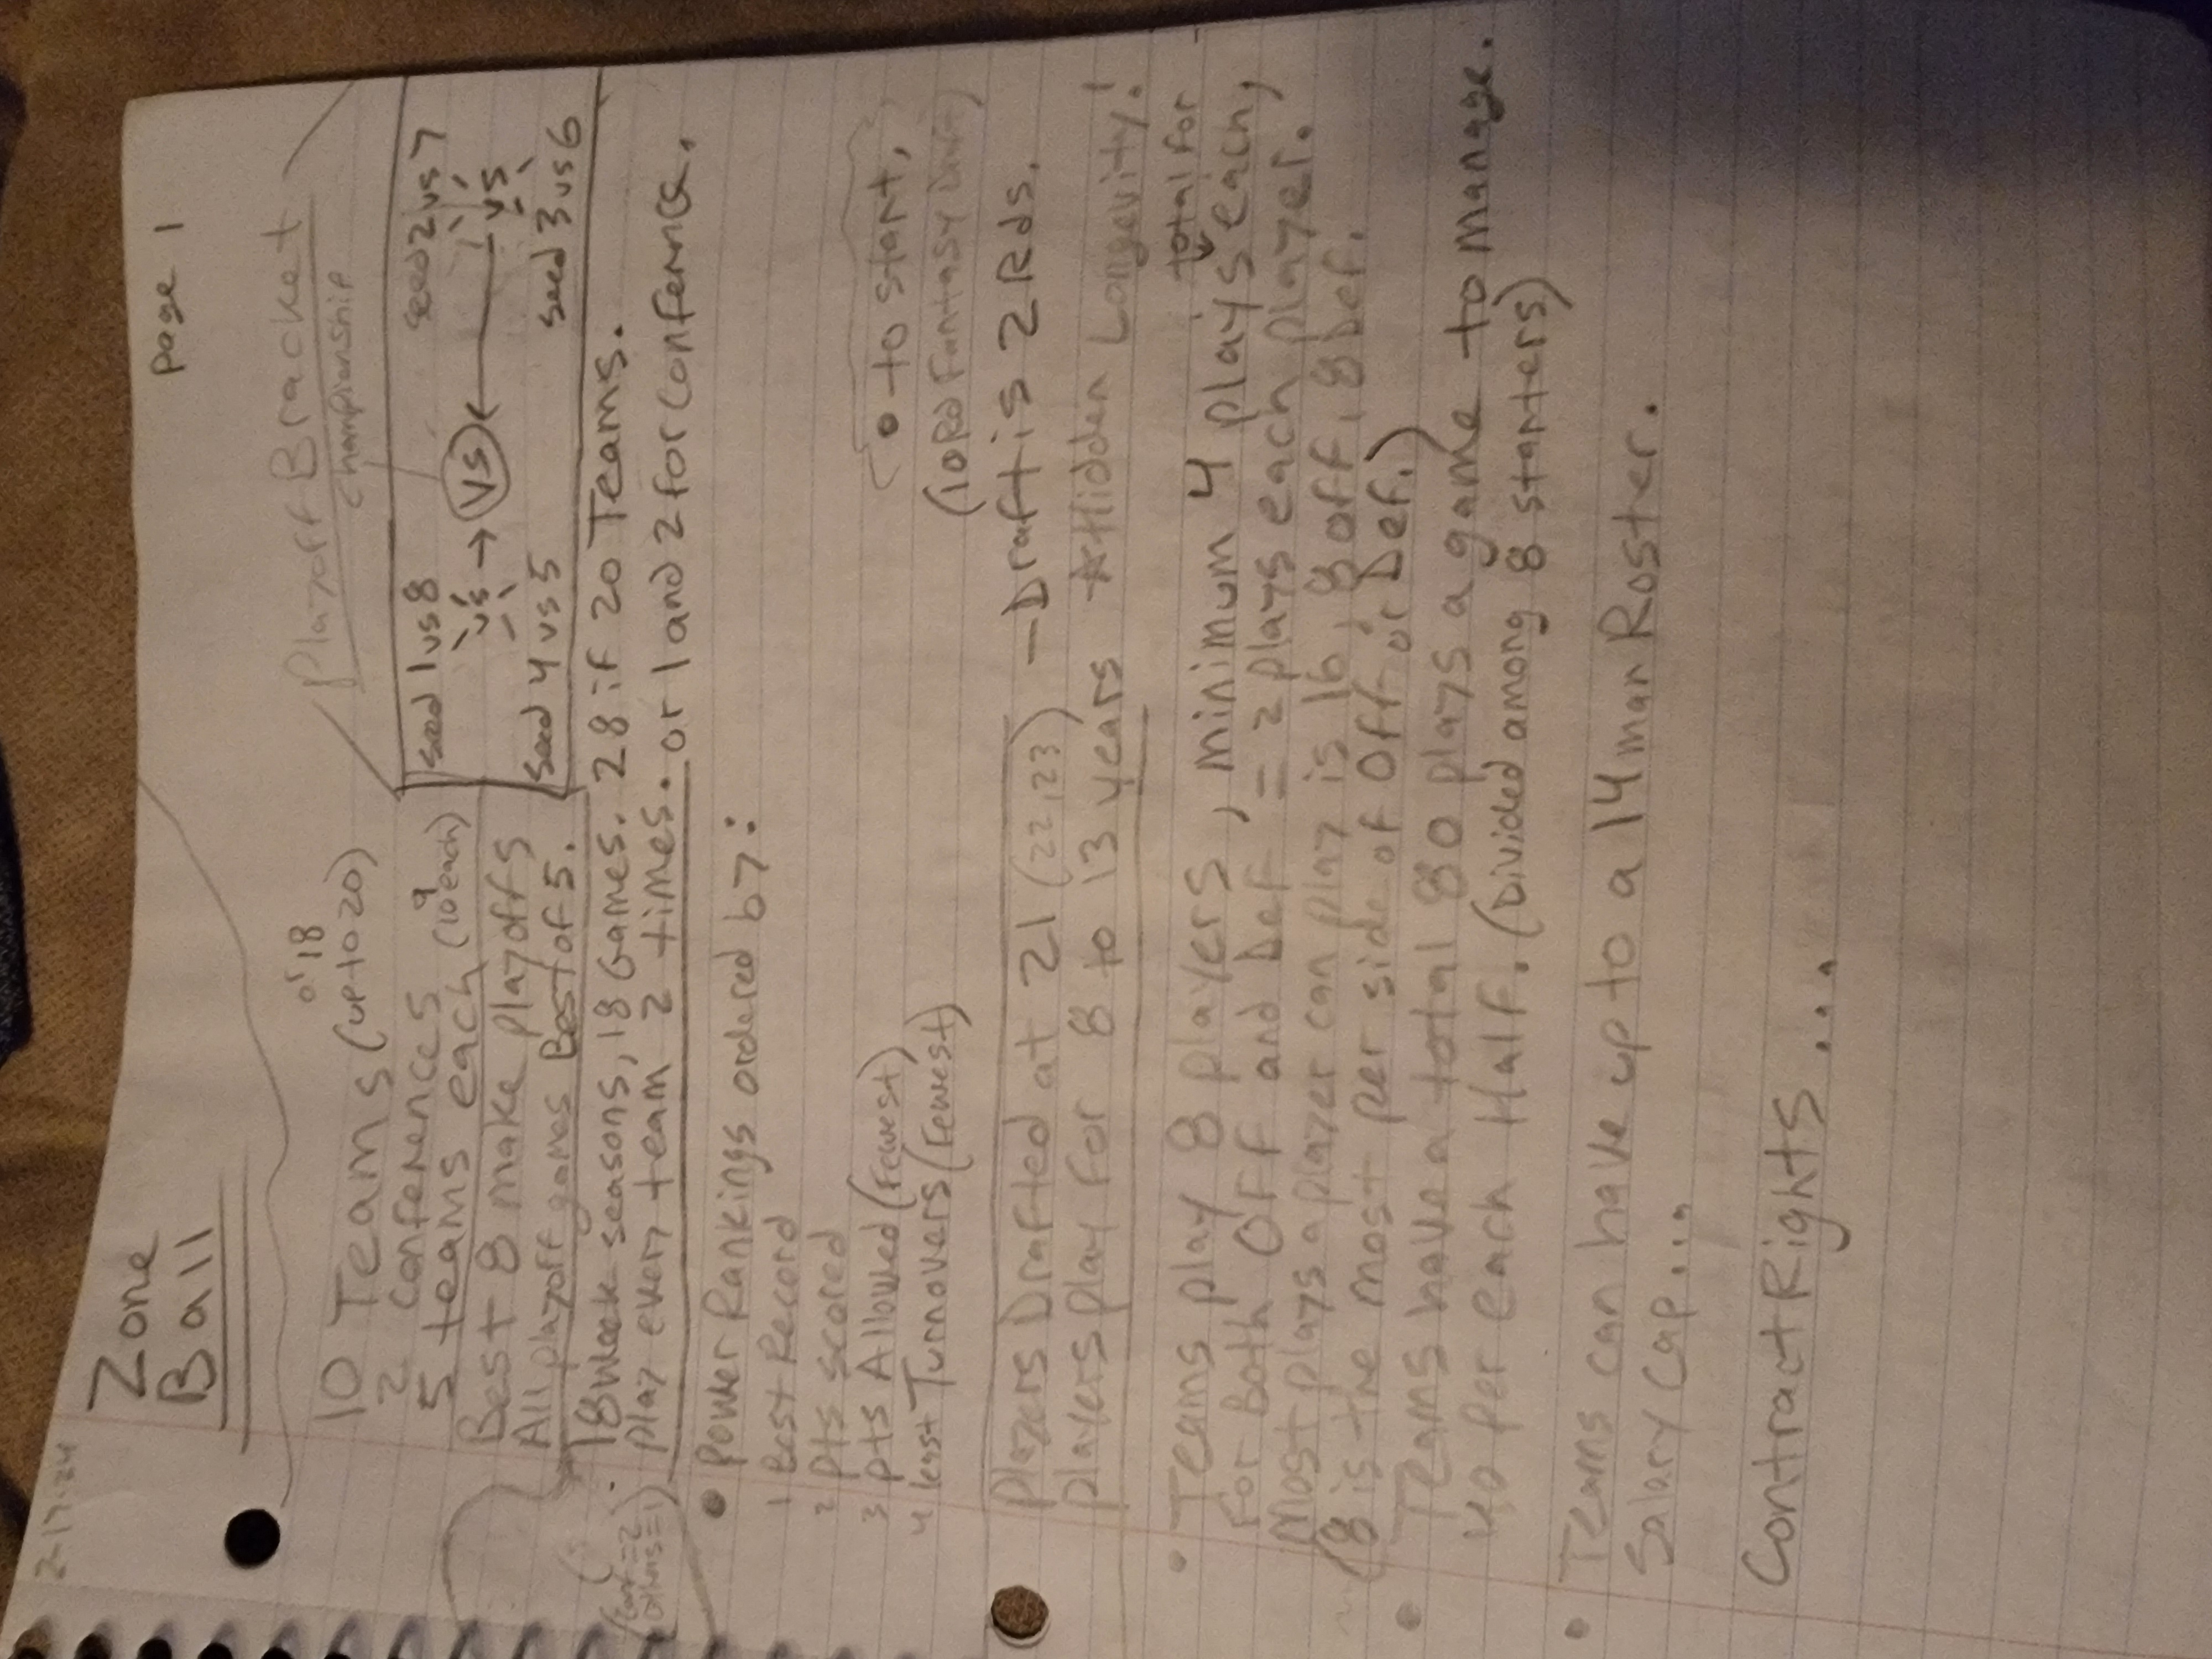 2-17-24
Zone
Ball
page 1
or 18
10 Teams (up to 20)
2 conferences
9
5 teams each (10 each)
Best 8 make playoffs
All playoff games Best of 5.
Playoff Bracket
championship
seed 1 vs 8
seed 2 vs 7
vs → vs ← vs
seed 4 vs 5
seed 3 vs 6
18 week seasons, 18 Games. 28 if 20 Teams.
(conf = 2
others = 1)
play every team 2 times. or 1 and 2 for confernce.
• Power Rankings ordered by:
1 Best Record
2 pts scored
3 pts Allowed (Fewest)
4 least Turnovers (Fewest)
• to start,
(10 Rd Fantasy Draft)
Players Drafted at 21 (22,23) - Draft is 2 Rds.
players play for 8 to 13 years ☆Hidden Longevity!
total for
• Teams play 8 players, minimum 4 plays each,
For Both OFF and Def = 2 plays each player.
Most plays a player can play is 16, 8 off, 8 Def.
(8 is the most per side of Off or Def.)
• Teams have a total 80 plays a game to manage.
40 per each Half. (Divided among 8 starters)
• Teams can have up to a 14 man Roster.
Salary Cap...
Contract Rights ...